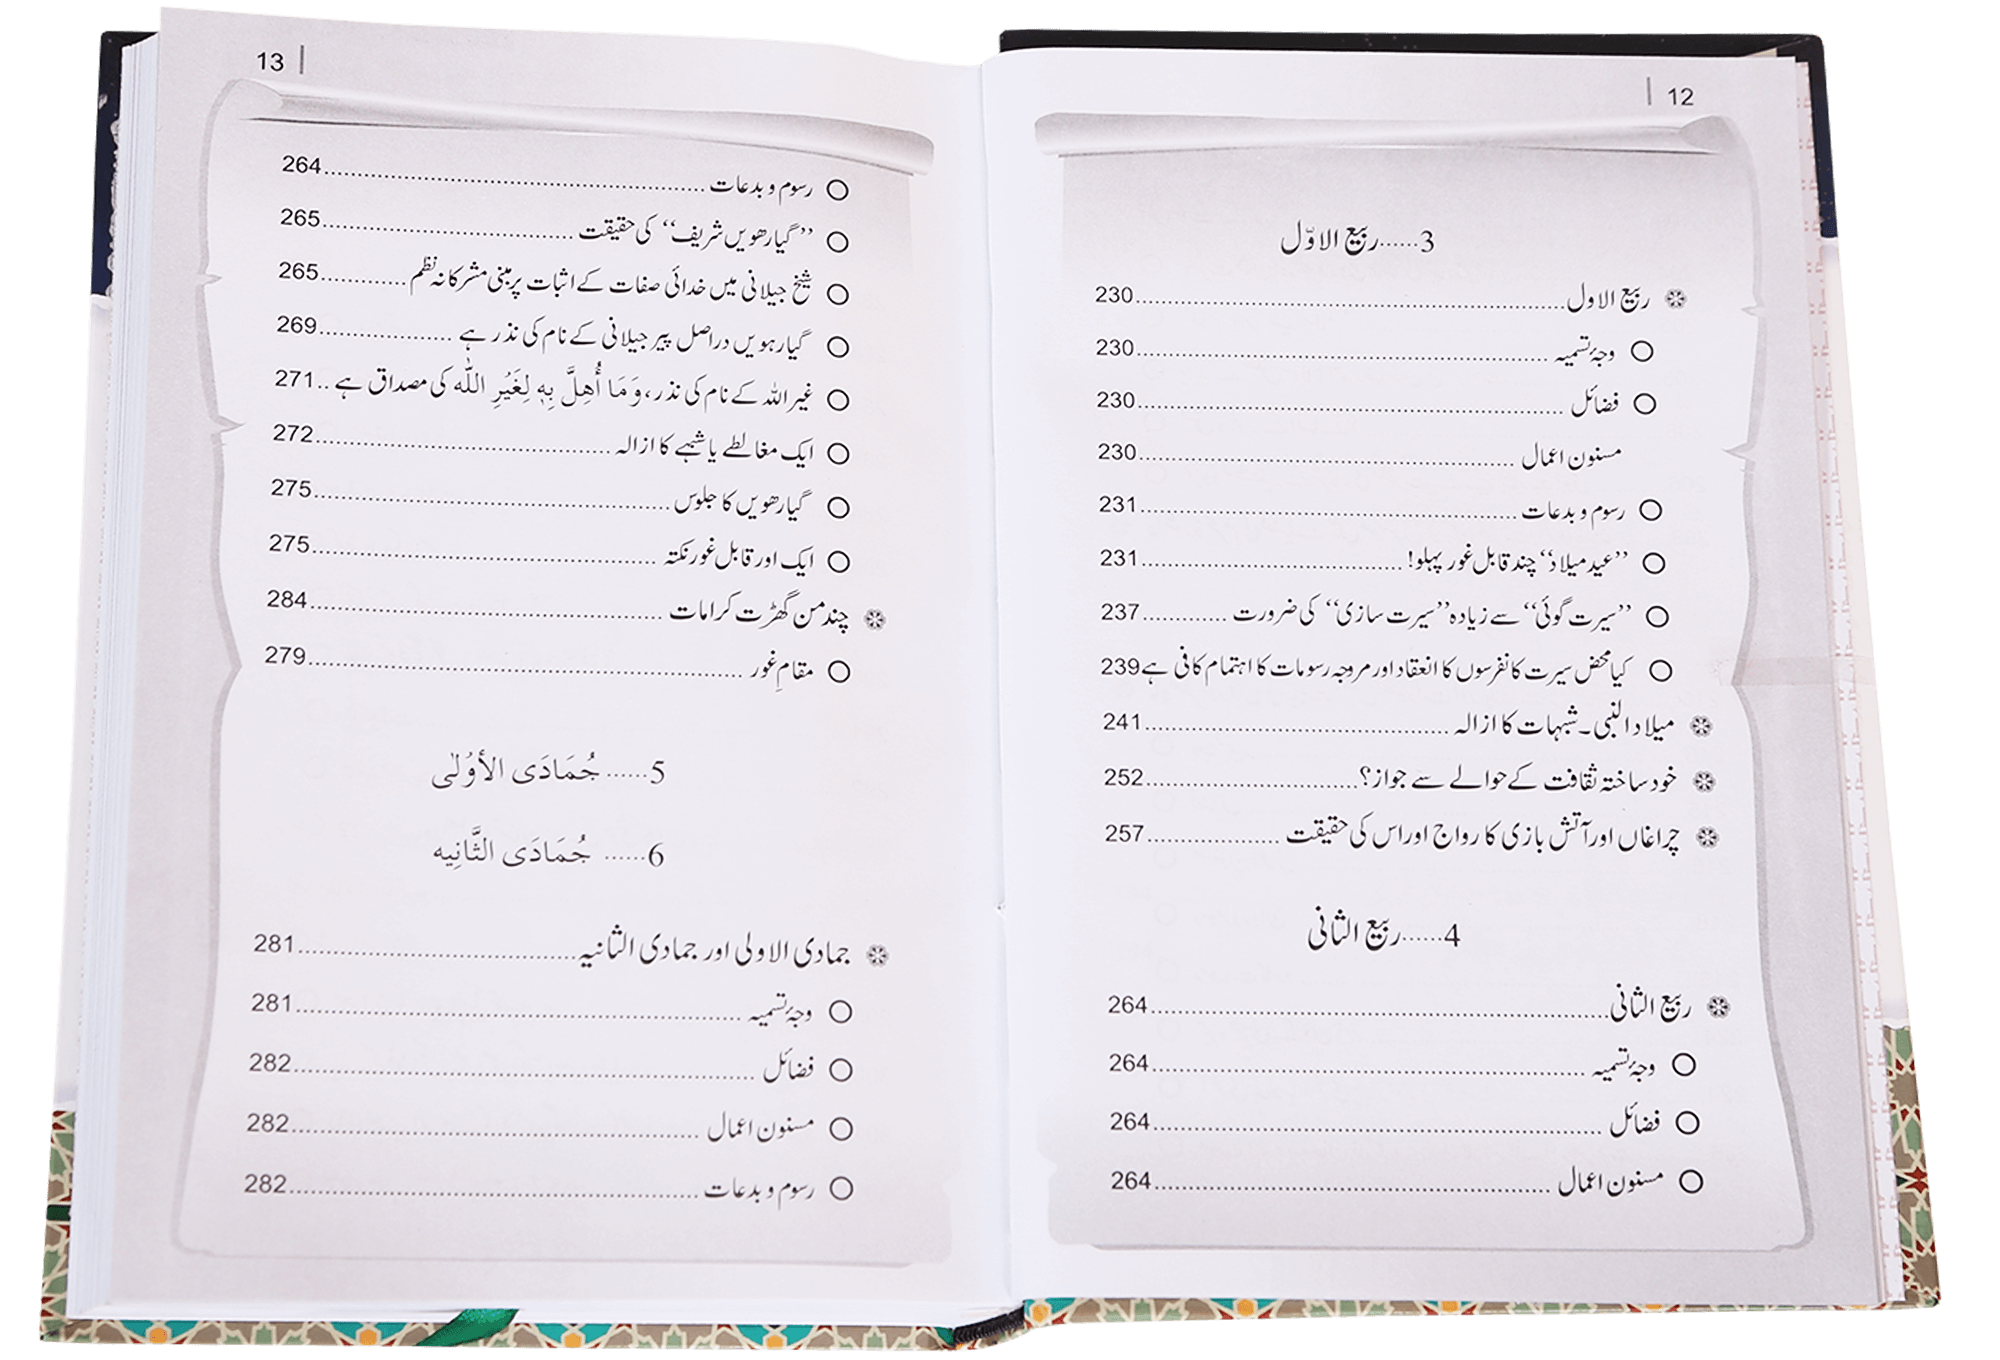 12
3......ربیع الاوّل
ربیع الاول......230
وجۂ تسمیہ......230
فضائل......230
مسنون اعمال......230
رسوم و بدعات......231
’’عید میلاد‘‘ چند قابل غور پہلو!......231
’’سیرت گوئی‘‘ سے زیادہ ’’سیرت سازی‘‘ کی ضرورت......237
کیا محض سیرت کانفرسوں کا انعقاد اور مروجہ رسومات کا اہتمام کافی ہے 239
میلاد النبی۔ شبہات کا ازالہ......241
خود ساختہ ثقافت کے حوالے سے جواز؟......252
چراغاں اور آتش بازی کا رواج اور اس کی حقیقت......257
4......ربیع الثانی
ربیع الثانی......264
وجۂ تسمیہ......264
فضائل......264
مسنون اعمال......264
13
رسوم و بدعات......264
’’گیارھویں شریف‘‘ کی حقیقت......265
شیخ جیلانی میں خدائی صفات کے اثبات پر مبنی مشرکانہ نظم......265
گیارہویں دراصل پیر جیلانی کے نام کی نذر ہے......269
غیر اللہ کے نام کی نذر، وَمَا أُهِلَّ بِهٖ لِغَيْرِ اللّٰه کی مصداق ہے ..271
ایک مغالطے یا شبہے کا ازالہ......272
گیارھویں کا جلوس......275
ایک اور قابل غور نکتہ......275
چند من گھڑت کرامات......284
مقامِ غور......279
5......جُمَادَى الأوْلٰى
6......جُمَادَى الثَّانِيه
جمادی الاولی اور جمادی الثانیہ......281
وجۂ تسمیہ......281
فضائل......282
مسنون اعمال......282
رسوم و بدعات......282